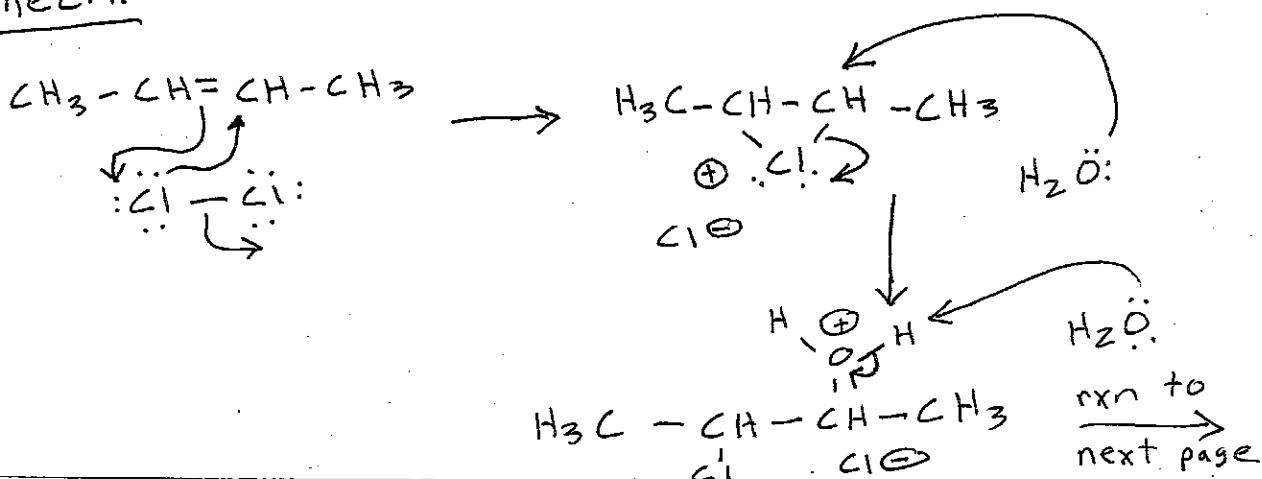 CH3 - CH = CH - CH3
:Cl — Cl:
H3C - CH - CH - CH3
⊕ Cl
Cl ⊖
H2O:
H ⊕ H
O
H2O
H3C — CH — CH — CH3
Cl Cl ⊖
rxn to
next page